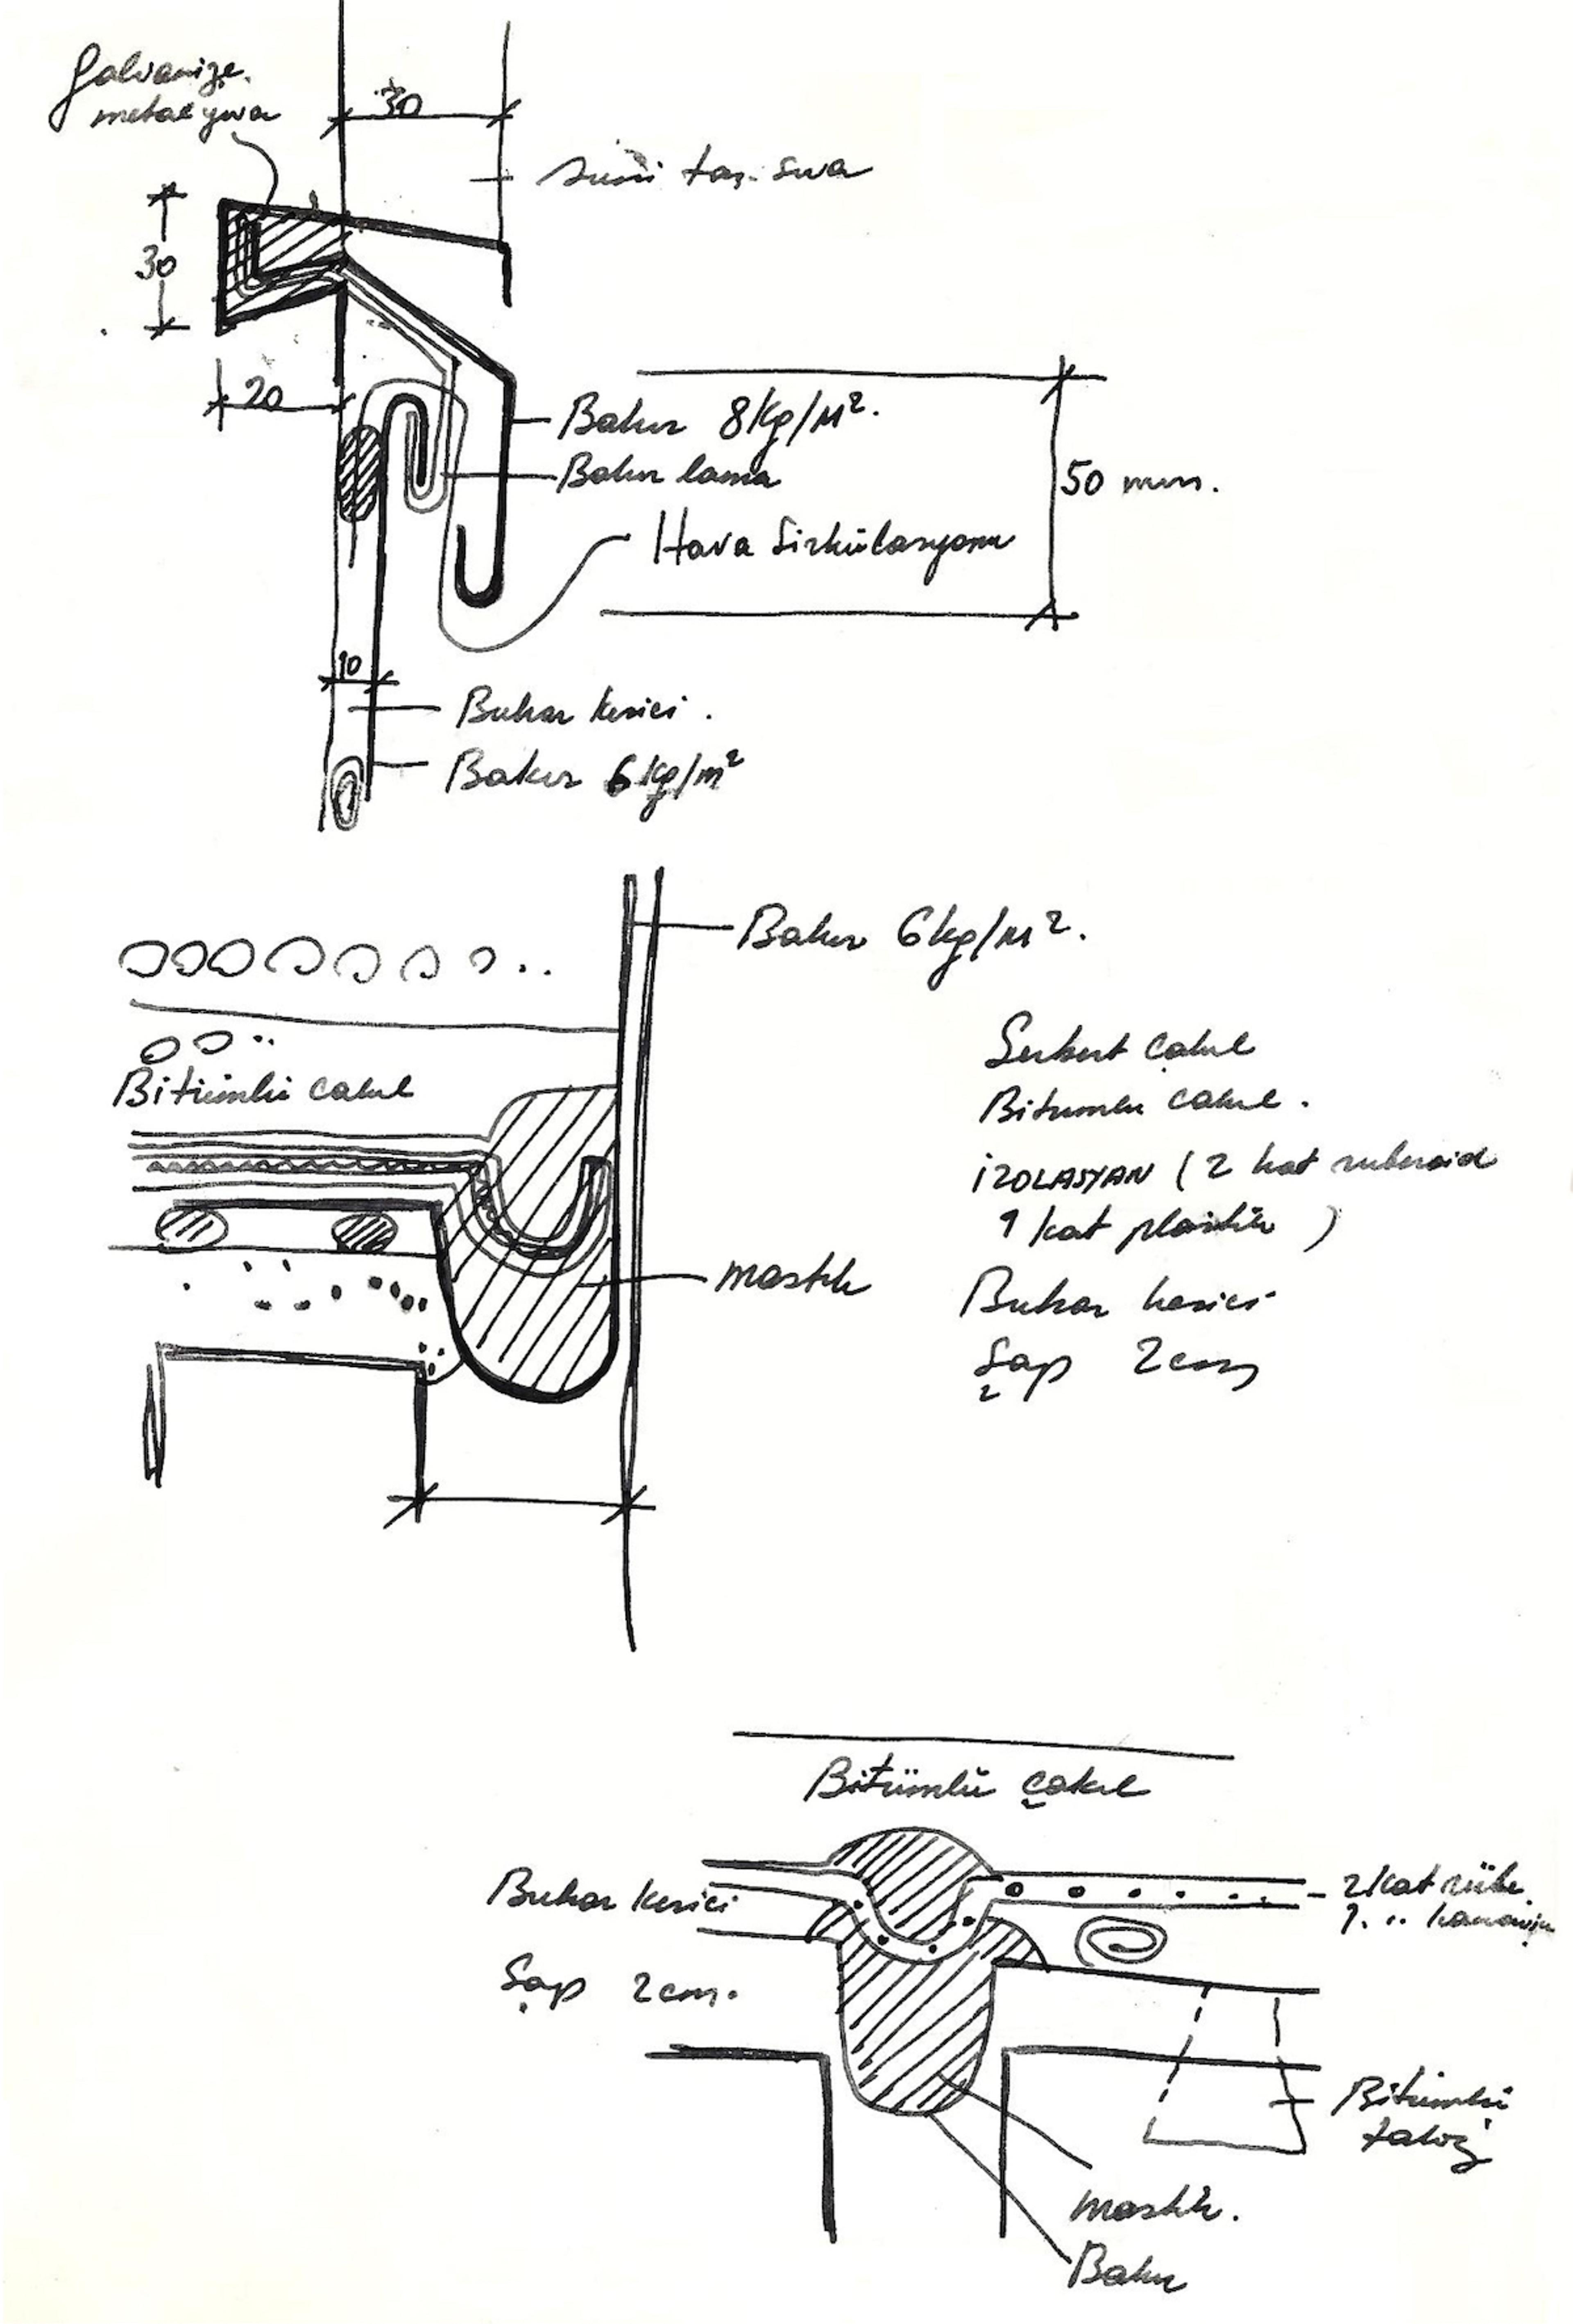 Galvanize
metal yuva
30
suni taş sıva
30
20
Bakır 8 kg/M².
Bakır lama
50 mm.
Hava Sirkülasyonu
10
Buhar kesici.
Bakır 6 kg/m²
Bakır 6 kg/M².
Bitümlü cakıl
Serbest çakıl
Bitumlu cakıl.
İZOLASYAN (2 kat ruberoid
1 kat plastik)
mastik
Buhar kesici
Şap 2 cm
Bitümlü çakıl
Buhar kesici
2 kat rübe.
1. ..
Şap 2 cm.
Bitümlü
takoz
mastik.
Bakır